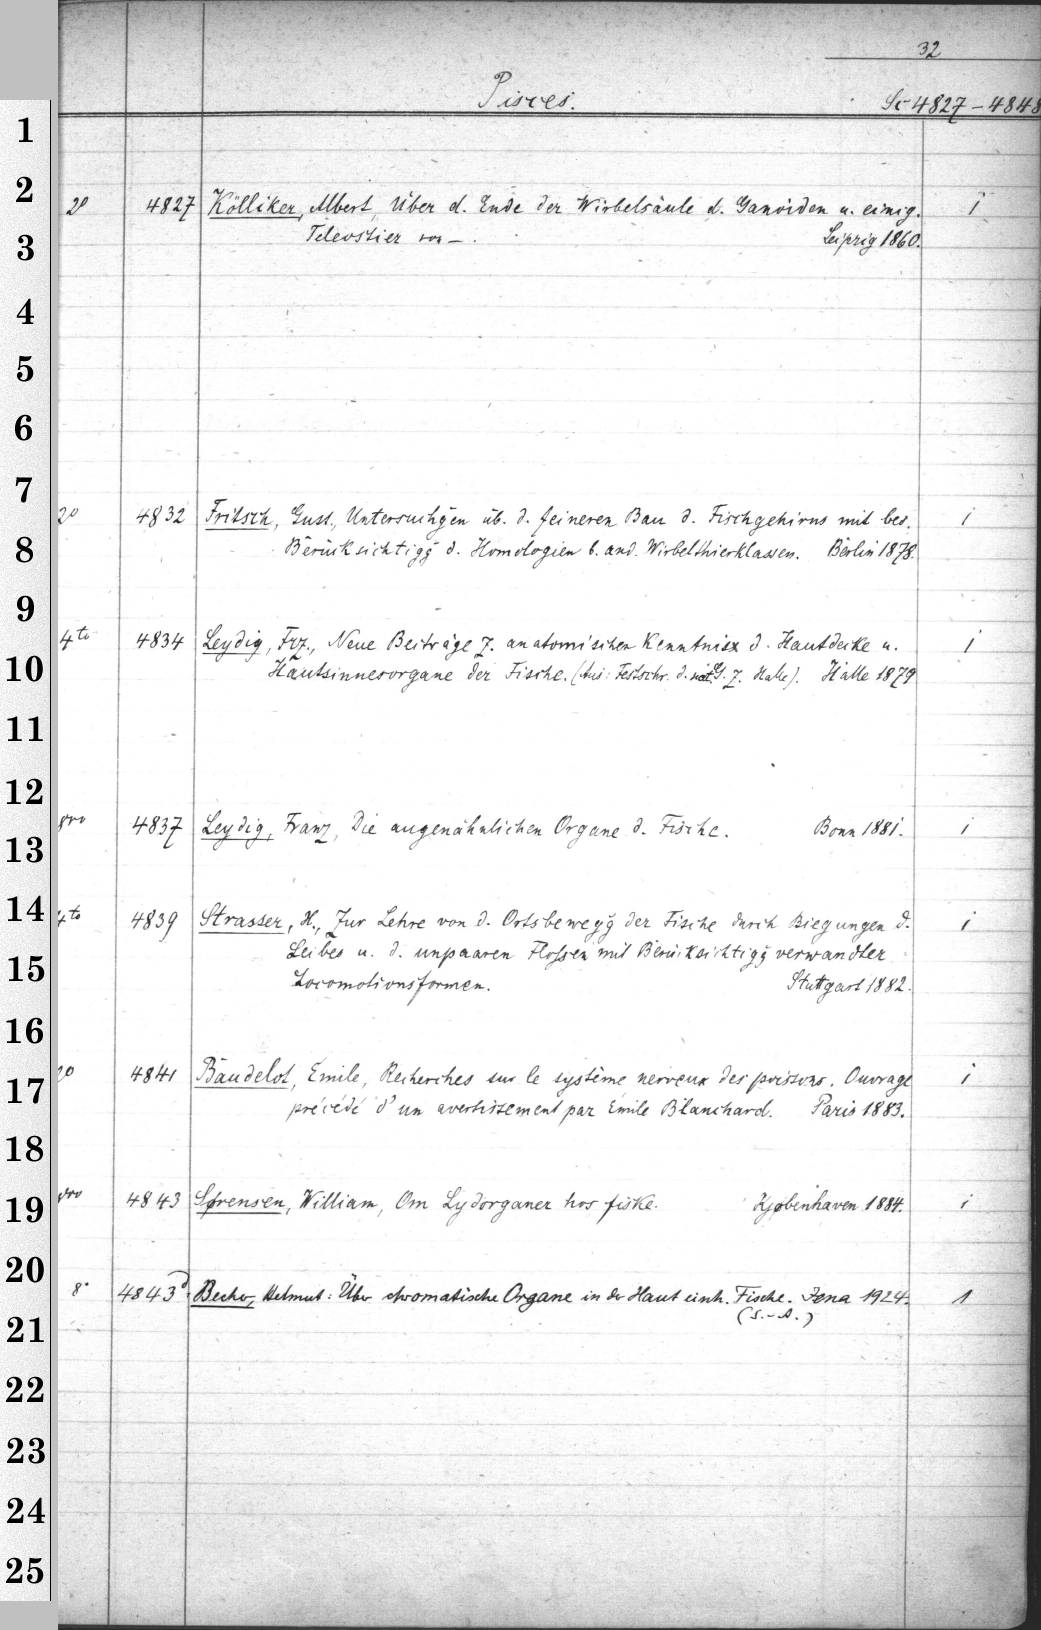 32
Pisces.
Sc 4827-4848
1
2
3
4
5
6
7
8
9
10
11
12
13
14
15
16
17
18
19
20
21
22
23
24
25
2º 4827 Kölliker, Albert, Über d. Ende der Wirbelsäule d. Ganoiden u. einig. 1
Teleostier von —. Leipzig 1860.
2º 4832 Fritsch, Gust., Untersuchḡen üb. d. feineren Bau d. Fischgehirns mit bes. 1
Berücksichtigḡ d. Homologien b. and. Wirbelthierklassen. Berlin 1878.
4to 4834 Leydig, Frz., Neue Beiträge z. anatomischen Kenntniss d. Hautdecke u. 1
Hautsinnesorgane der Fische. (Aus: Festschr. d. nat. G. z. Halle). Halle 1879
8vo 4837 Leydig, Franz, Die augenähnlichen Organe d. Fische. Bonn 1881. 1
4to 4839 Strasser, H., Zur Lehre von d. Ortsbewegḡ der Fische durch Biegungen d. 1
Leibes u. d. unpaaren Flossen mit Berücksichtigḡ verwandter
Locomotionsformen. Stuttgart 1882.
2º 4841 Baudelot, Emile, Recherches sur le système nerveux des poissons. Ouvrage 1
précédé d'un avertissement par Emile Blanchard. Paris 1883.
8vo 4843 Sørensen, William, Om Lydorganer hos fiske. Kjøbenhaven 1884. 1
8º 4843d Becher, Helmut: Über chromatische Organe in der Haut einh. Fische. Jena 1924. 1
(S.-A.)